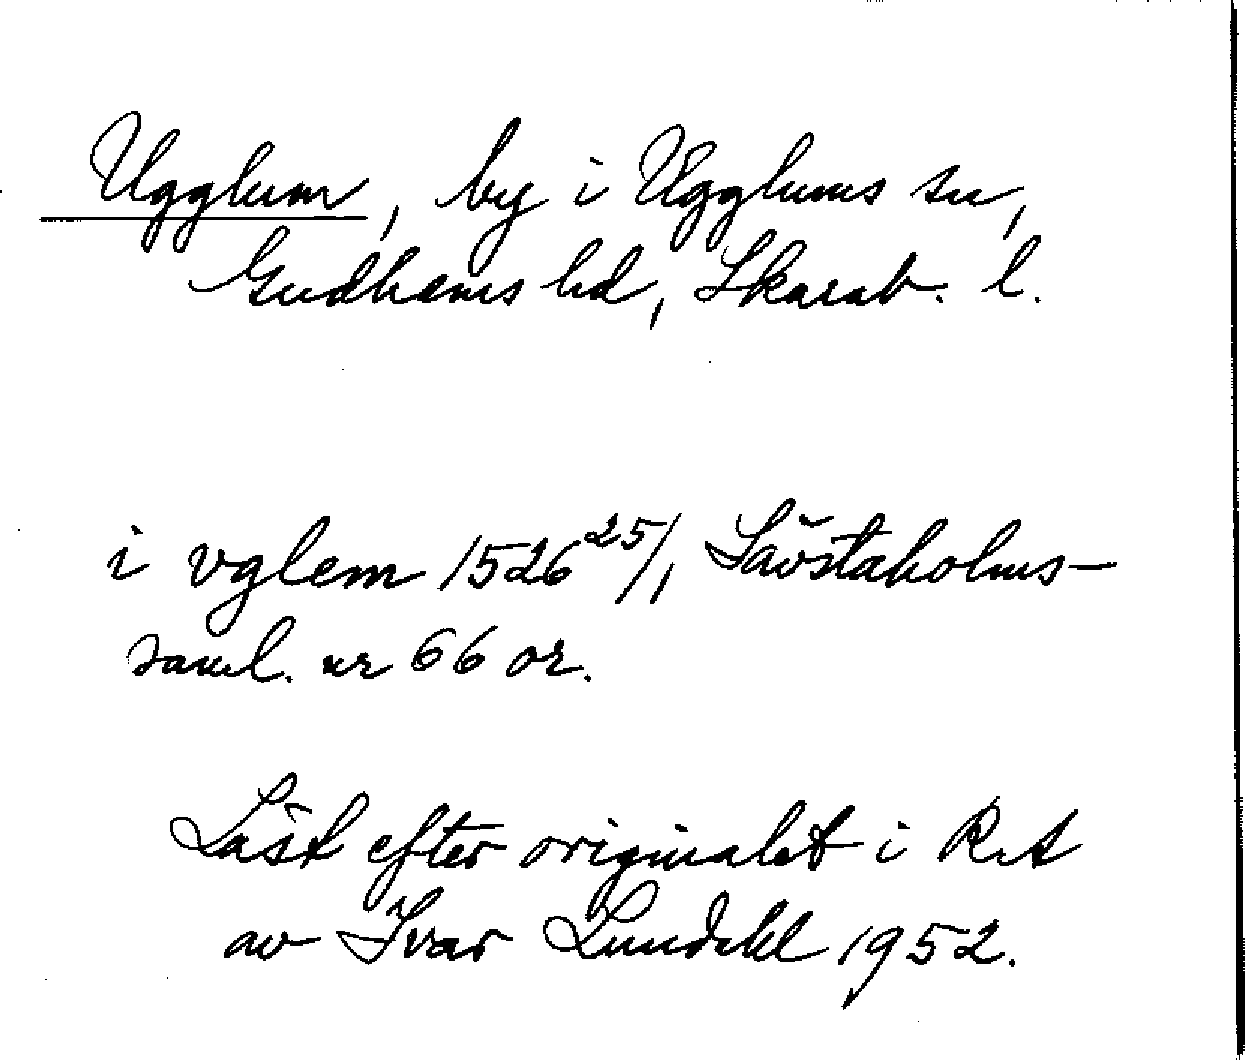 Ugglum, by i Ugglums sn,
Gudhems hd, Skarab. l.
i vglem 1526 25/1 Sävstaholms-
saml. nr 66 or.
Läst efter originalet i RA
av Ivar Lundahl 1952.